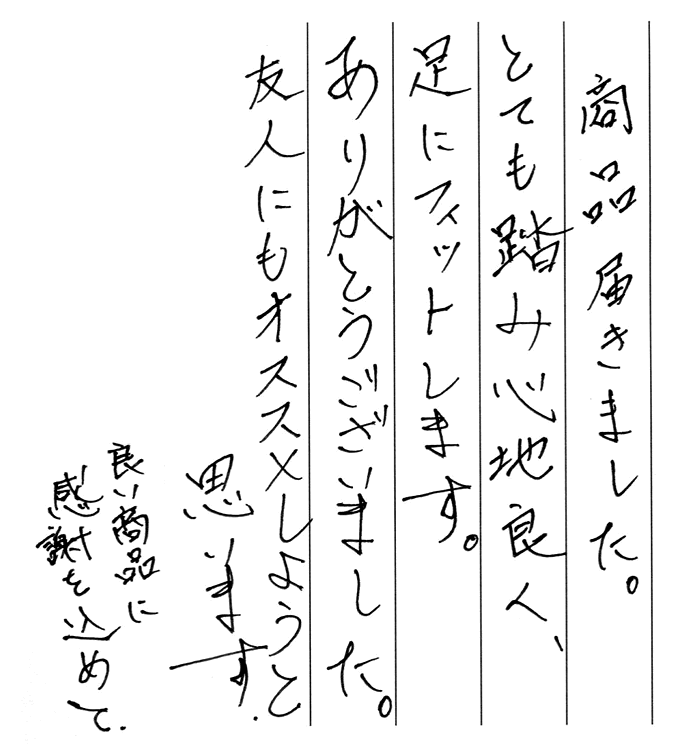 商品届きました。
とても踏み心地良く、
足にフィットします。
ありがとうございました。
友人にもオススメしようと
思います.
良い商品に
感謝を込めて.